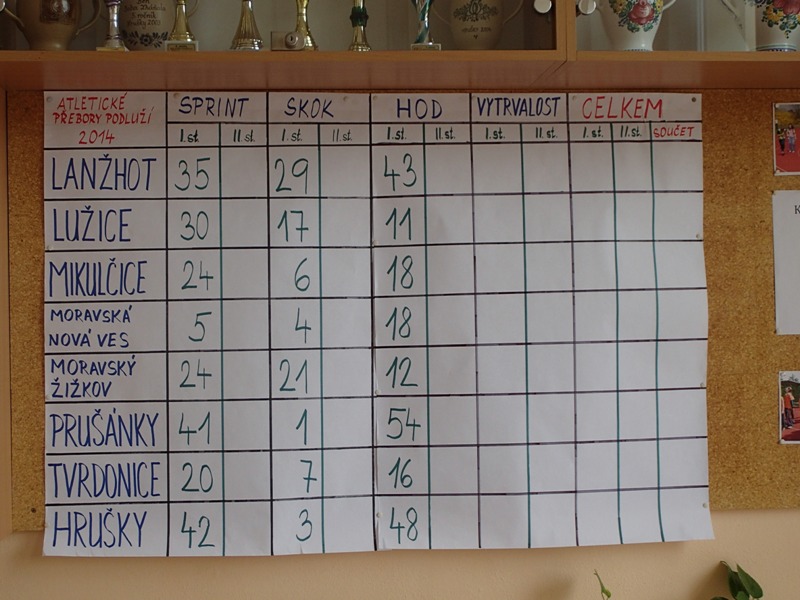 ATLETICKÉ
PŘEBORY PODLUŽÍ
2014
SPRINT SKOK HOD VYTRVALOST CELKEM
I.st. II.st. I.st. II.st. I.st. II.st. I.st. II.st. I.st. II.st. SOUČET
LANŽHOT 35 29 43
LUŽICE 30 17 11
MIKULČICE 24 6 18
MORAVSKÁ
NOVÁ VES 5 4 18
MORAVSKÝ
ŽIŽKOV 24 21 12
PRUŠÁNKY 41 1 54
TVRDONICE 20 7 16
HRUŠKY 42 3 48
K